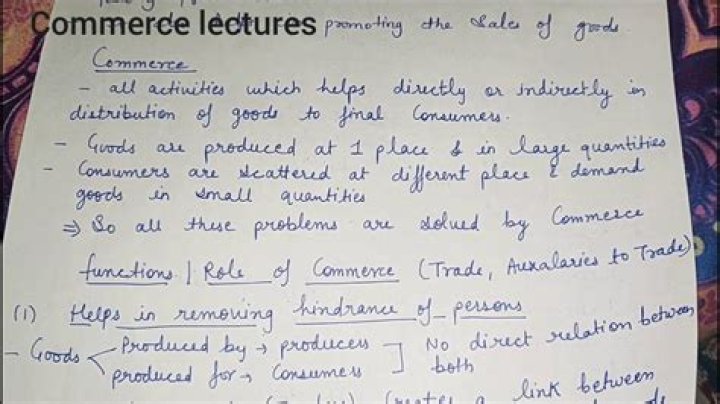 Commerce lectures promoting the Sales of goods.
Commerce
- all activities which helps directly or indirectly in
distribution of goods to final Consumers.
- Goods are produced at 1 place & in large quantities
- Consumers are scattered at different place & demand
goods in small quantities
⇒ So all these problems are solved by Commerce
functions | Role of Commerce (Trade, Auxalaries to Trade)
(1) Helps in removing hindrance of persons
- Goods Produced by → producers ] No direct relation between
produced for → Consumers both
Creates a link between